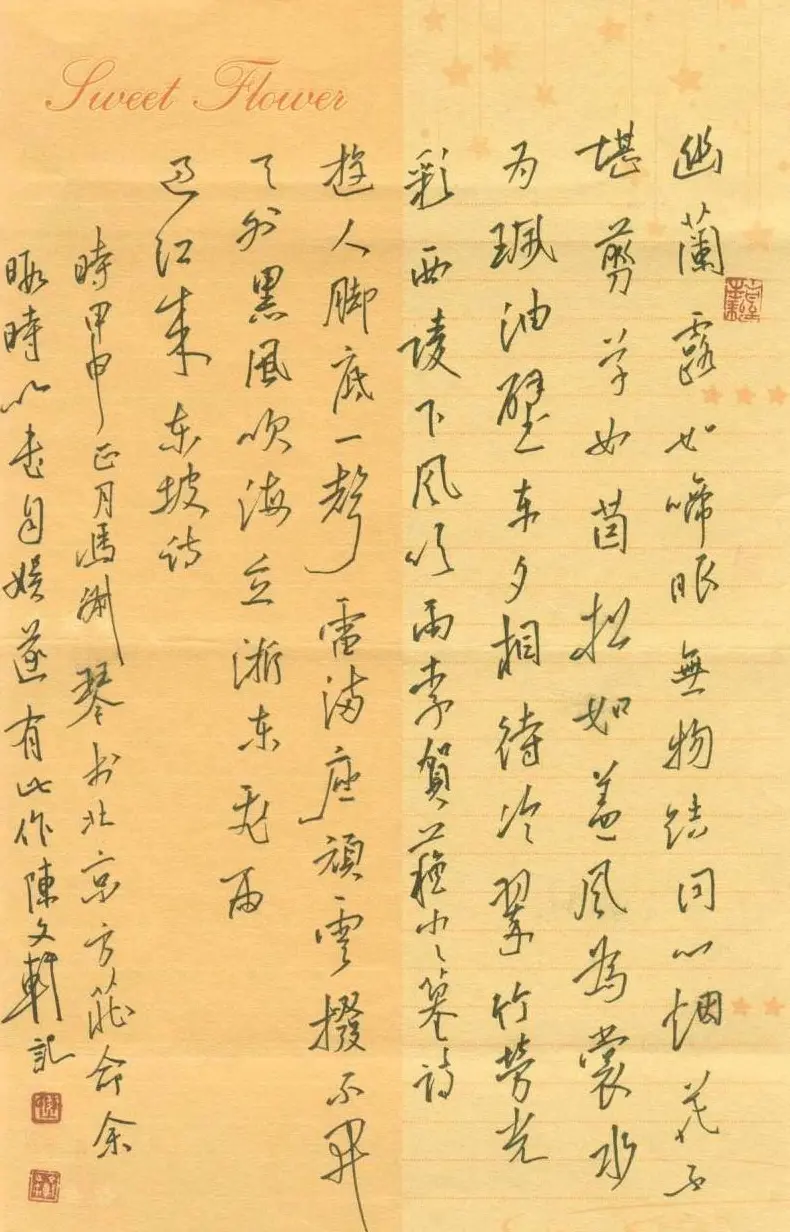 Sweet Flower
幽蘭露如啼眼無物結同心烟花不
堪剪草如茵松如蓋風為裳水
为珮油壁車夕相待冷翠竹勞光
彩西陵下風吹雨李賀蘇小〻墓詩
遊人脚底一聲雷滿座頑雲撥不開
天外黑風吹海立淅東飛雨
過江來東坡詩
時甲申正月馮淵琴书北京方莊命余
暇時以書自娛遂有此作陳文軒記